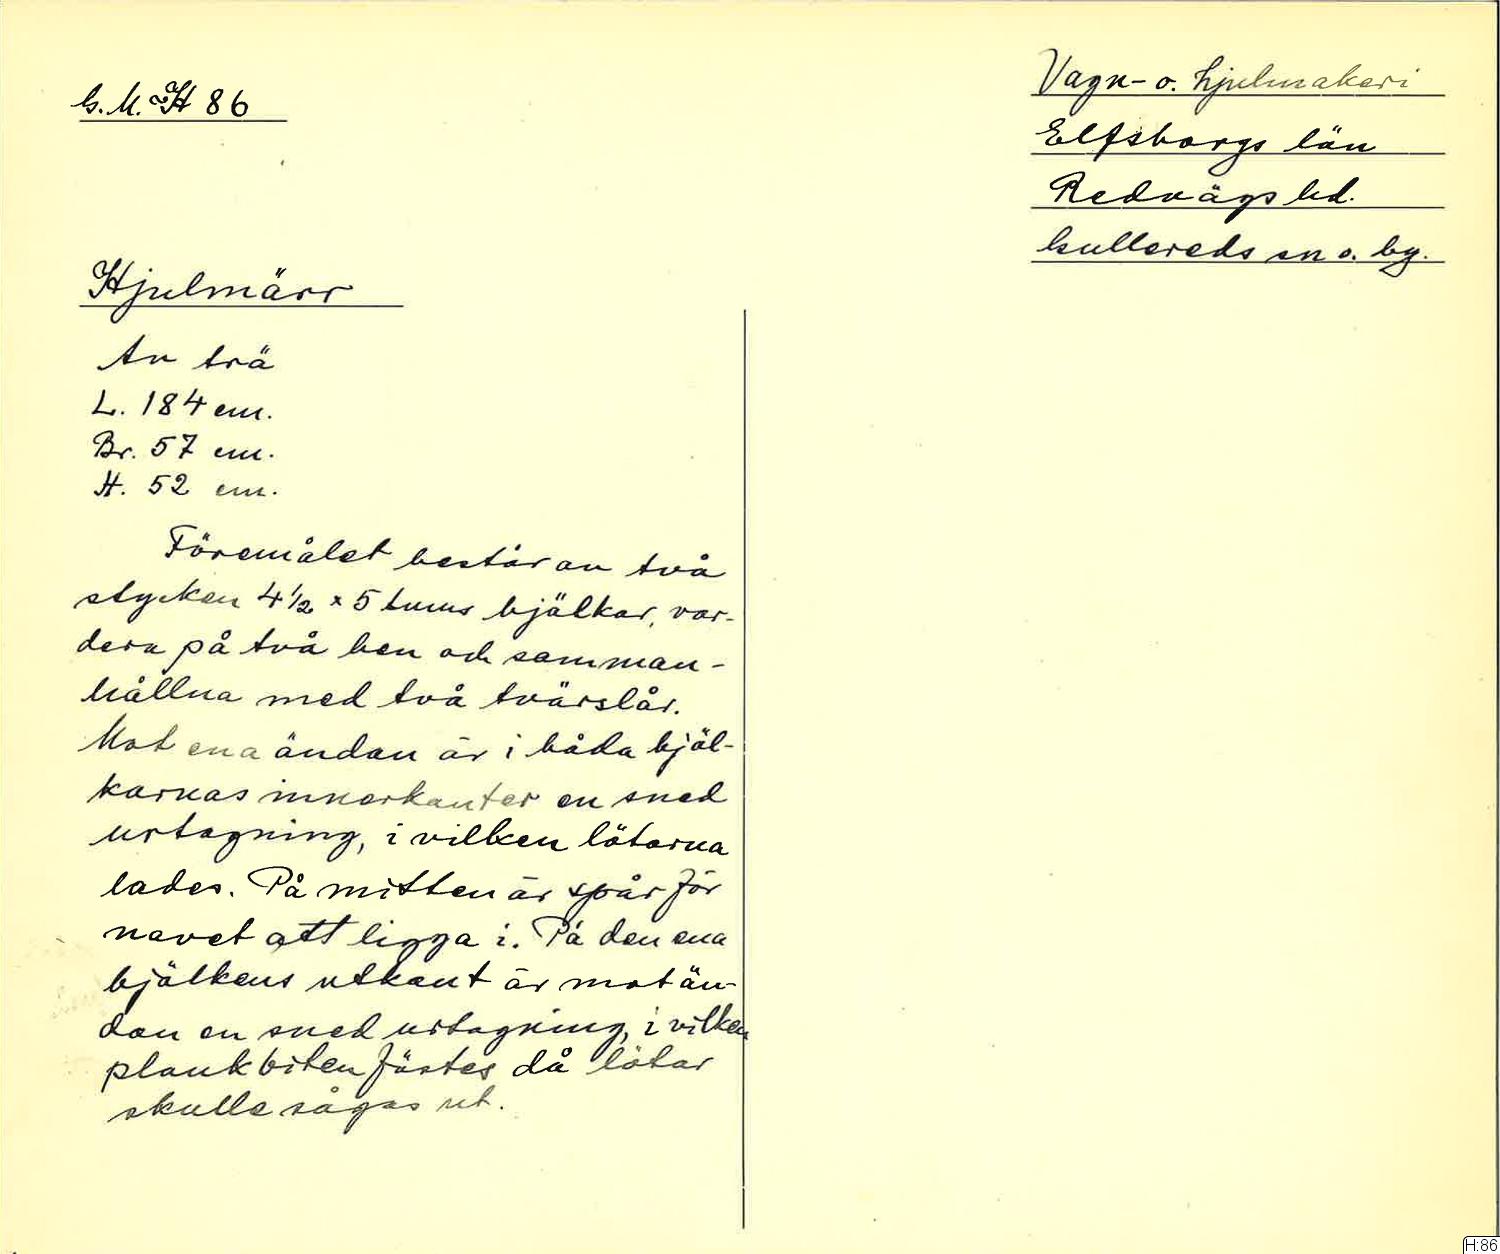 G.M. H 86
Vagn- o. hjulmakeri
Elfsborgs län
Redvägs hd.
Gullereds sn o. by.
Hjulmärr
Av trä
L. 184 cm.
Br. 57 cm.
H. 52 cm.
Föremålet består av två
stycken 4½ x 5 tums bjälkar, var-
dera på två ben och samman-
hållna med två tvärslår.
Mot ena ändan är i båda bjäl-
karnas innerkanter en sned
urtagning, i vilken lötarna
lades. På mitten är spår för
navet att ligga i. På den ena
bjälkens utkant är mot än-
dan en sned urtagning, i vilken
plankbiten fästes då lötar
skulle sågas ut.
H:86